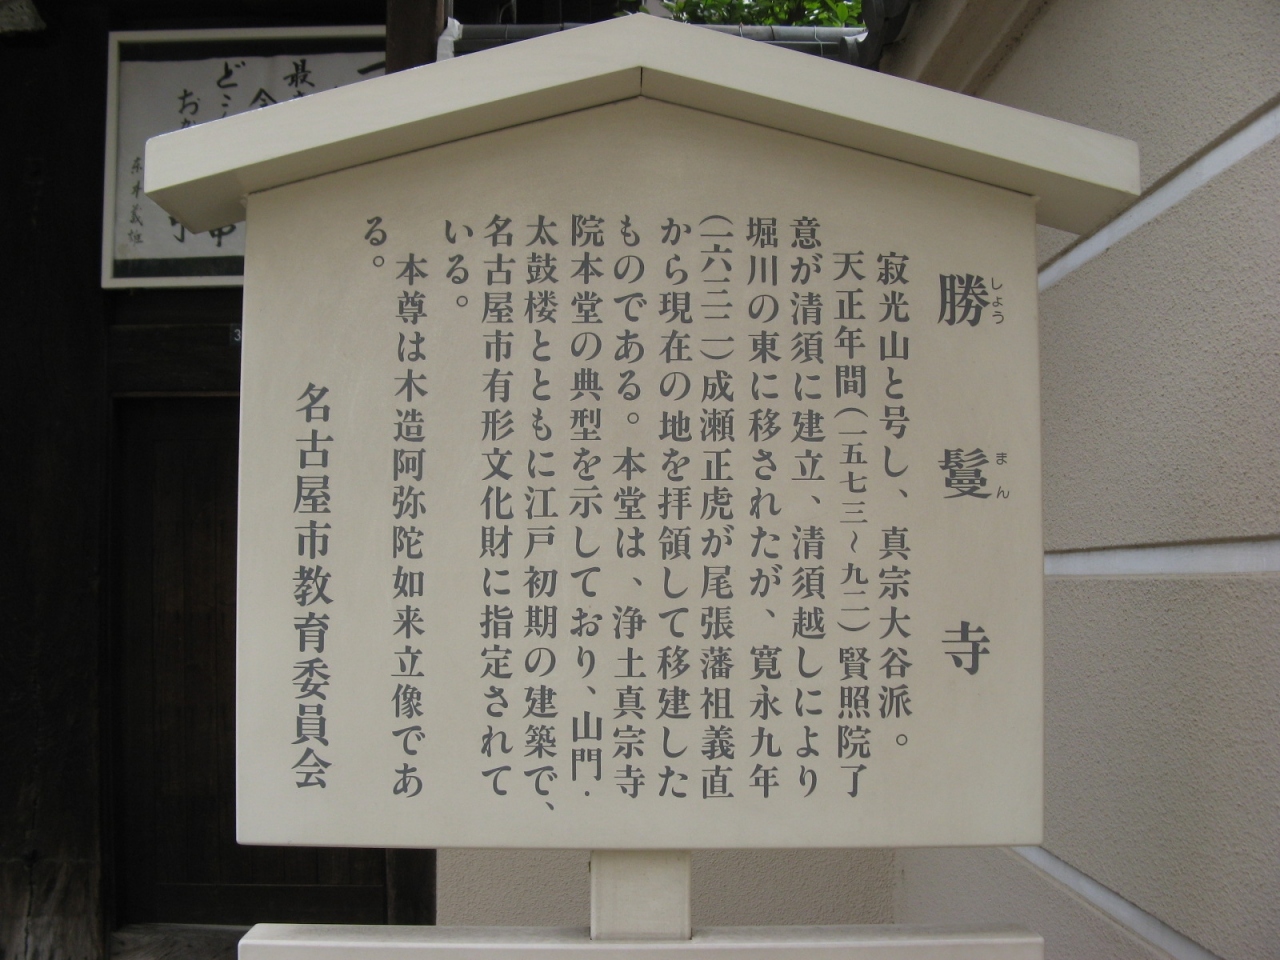 勝鬘寺
しょう まん
寂光山と号し、真宗大谷派。
天正年間(一五七三~九二)賢照院了
意が清須に建立、清須越しにより
堀川の東に移されたが、寛永九年
(一六三二)成瀬正虎が尾張藩祖義直
から現在の地を拝領して移建した
ものである。本堂は、浄土真宗寺
院本堂の典型を示しており、山門・
太鼓楼とともに江戸初期の建築で、
名古屋市有形文化財に指定されて
いる。
本尊は木造阿弥陀如来立像であ
る。
名古屋市教育委員会